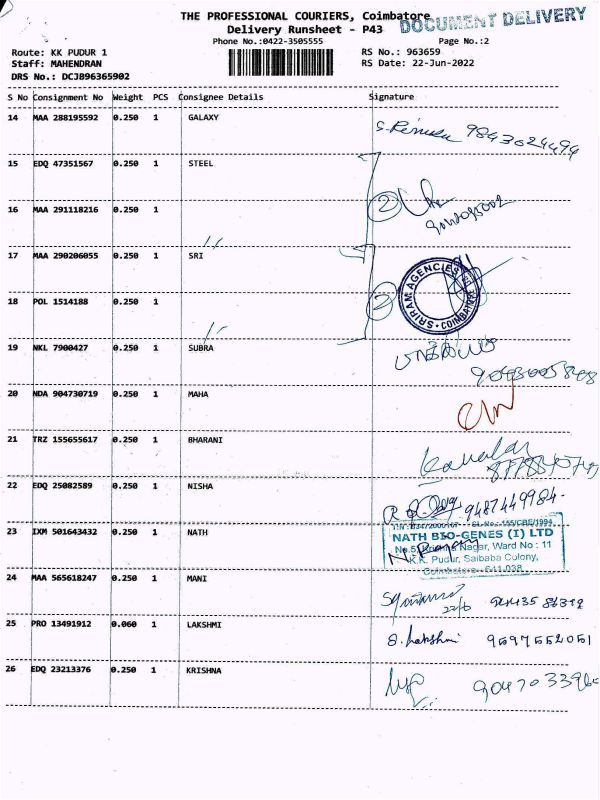 THE PROFESSIONAL COURIERS, Coimbatore
DOCUMENT DELIVERY
Delivery Runsheet - P43
Phone No.:0422-3505555
Page No.:2
Route: KK PUDUR 1
RS No.: 963659
Staff: MAHENDRAN
RS Date: 22-Jun-2022
DRS No.: DCJB96365902
S No Consignment No Weight PCS Consignee Details Signature
14 MAA 288195592 0.250 1 GALAXY
9843024494
15 EDQ 47351567 0.250 1 STEEL
16 MAA 291118216 0.250 1
2
17 MAA 290206055 0.250 1 SRI
SRIRAM AGENCIES COIMBATORE
18 POL 1514188 0.250 1
2
19 NKL 7900427 0.250 1 SUBRA
20 NDA 904730719 0.250 1 MAHA
21 TRZ 155655617 0.250 1 BHARANI
22 EDQ 25082589 0.250 1 NISHA
9487449984-
23 IXM 501643432 0.250 1 NATH
NATH BIO-GENES (I) LTD
No.5, Krishna Nagar, Ward No : 11
K.K. Pudur, Saibaba Colony,
Coimbatore - 641 038
24 MAA 565618247 0.250 1 MANI
22/6
25 PRO 13491912 0.060 1 LAKSHMI
S. Lakshmi 9597552051
26 EDQ 23213376 0.250 1 KRISHNA